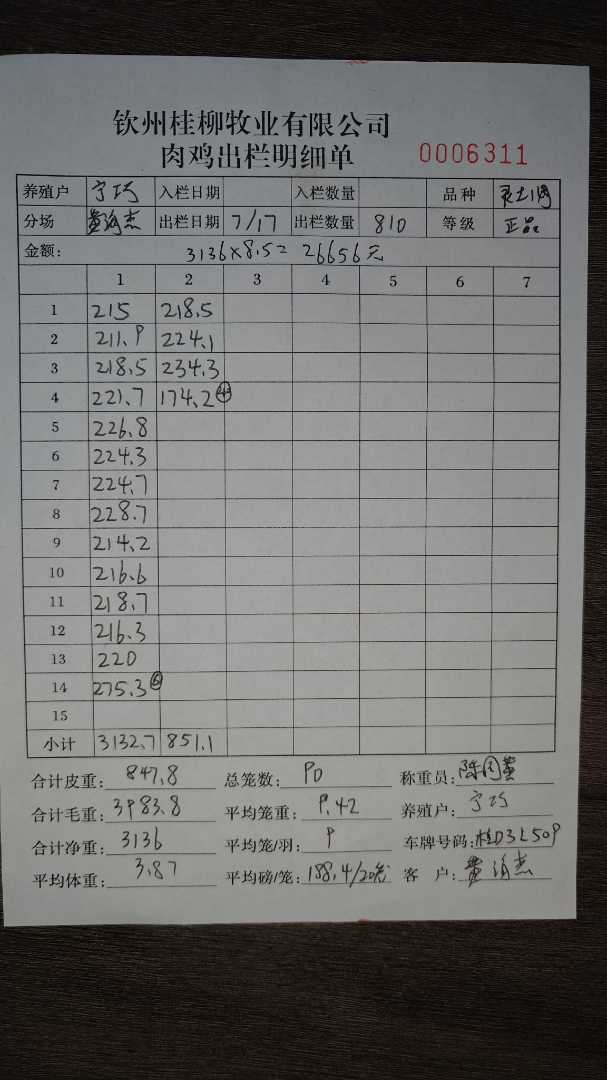 钦州桂柳牧业有限公司
肉鸡出栏明细单 0006311
养殖户 宁巧 入栏日期 入栏数量 品种
分场 出栏日期 7/17 出栏数量 810 等级 正品
金额: 3136×8.5= 26656元
1 2 3 4 5 6 7
1 215 218.5
2 211.9 224.1
3 218.5 234.3
4 221.7 174.2 ④
5 226.8
6 224.3
7 224.7
8 228.7
9 214.2
10 216.6
11 218.7
12 216.3
13 220
14 275.3
15
小计 3132.7 851.1
合计皮重: 847.8 总笼数: 90 称重员:
合计毛重: 3983.8 平均笼重: 9.42 养殖户: 宁巧
合计净重: 3136 平均笼/羽: 9 车牌号码: 桂D3L509
平均体重: 3.87 平均磅/笼: 188.4/20 客户: